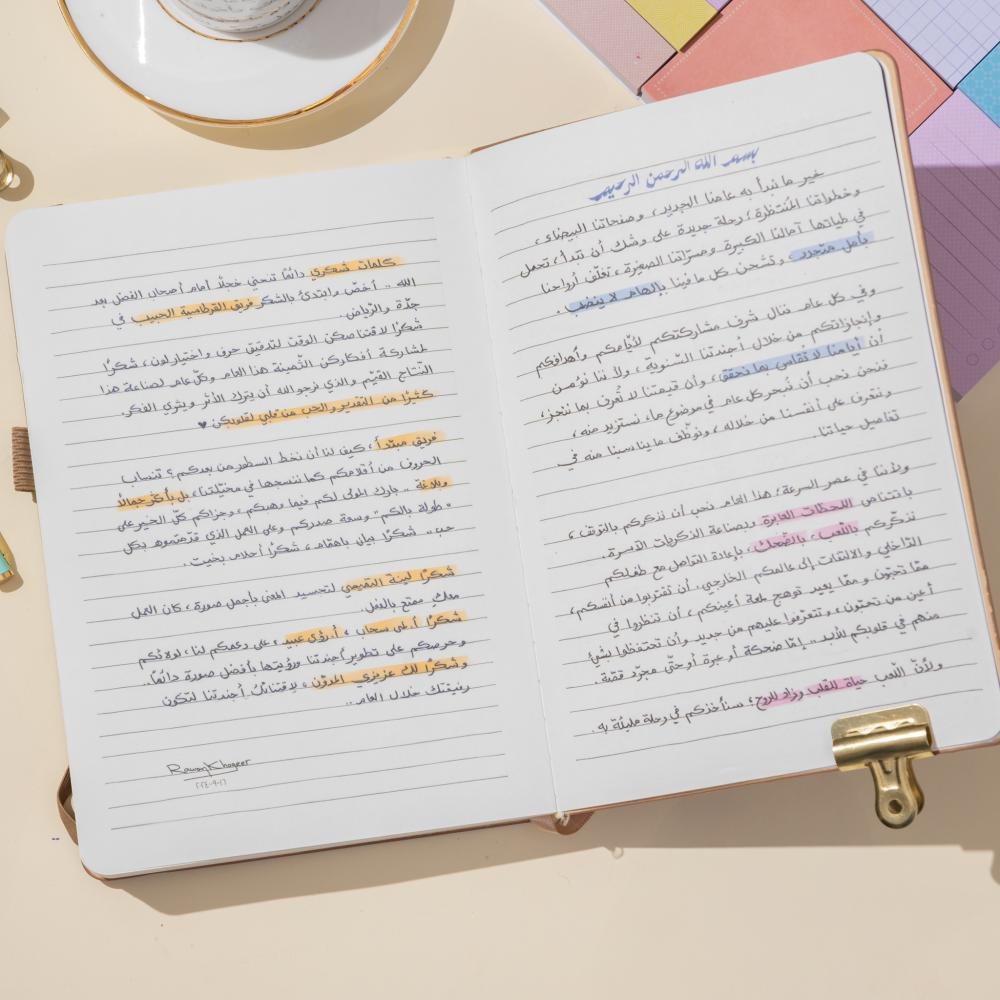 بسم الله الرحمن الرحيم
خير ما نبدأ به عامنا الجديد، وصفحاتنا البيضاء،
وخطواتنا المُنتظرة؛ رحلة جديدة على وشك أن تبدأ، تحمل
في طياتها آمالنا الكبيرة ومسرّاتنا الصغيرة، تغلّف أرواحنا
بأمل متجدد، وتشحن كل ما فينا بإلهام لا ينضب.
وفي كل عام ننال شرف مشاركتكم لأيّامكم وأهدافكم
وإنجازاتكم من خلال أجندتنا السّنوية، ولأننا نؤمن
أن أيامنا لا تُقاس بما نحقق، وأن قيمتنا لا تُعرف بما ننجز،
فنحن نحب أن نُبحر كل عام في موضوع ما، نستزيد منه،
ونتعرف على أنفسنا من خلاله، ونوظّف ما يناسبنا منه في
تفاصيل حياتنا.
ولأننا في عصر السرعة؛ هذا العام نحب أن نذكركم بالتوقف،
باقتناص اللحظات العابرة وبصناعة الذكريات الآسرة.
نذكّركم باللعب، بالضحك، بإعادة التواصل مع طفلكم
الدّاخلي والالتفات إلى عالمكم الخارجي. أن تقتربوا من أنفسكم،
ممّا تحبّون وممّا يعيد توهج لمعة أعينكم، أن تنظروا في
أعين من تحبّون، وتتعرّفوا عليهم من جديد وأن تحتفظوا بشيءٍ
منهم في قلوبكم للأبد.. إمّا ضحكة أو عبرة أو حتّى مجرّد قصّة.
ولأنّ اللعب حياة للقلب وزاد للروح؛ سنأخذكم في رحلة مليئة به.
كلمات شكري دائمًا تنحني خجلًا أمام أصحاب الفضل بعد
الله.. أخصّ وابتدئ بالشكر فريق القرطاسية الحبيب في
جدّة والرّياض.
شكرًا لاقتناصكن الوقت لتدقيق حرف واختيار لون، شكرًا
لمشاركة أفكاركن الثّمينة هذا العام وكلّ عام لصناعة هذا
النّتاج القيّم والذي نرجو الله أن يترك الأثر ويثري الفكر.
كثيرًا من التقدير والحب من قلبي لقلوبكن ♥
فريق مبتدأ، كيف لنا أن نخط السطور من بعدكم؟ تنساب
الحروف من أقلامكم كما ننسجها في مخيّلتنا، بل بأكثر جمالًا
وبلاغة.. بارك المولى لكم فيما وهبكم، وجزاكم كلّ الخير على
"طولة بالكم" وسعة صدركم وعلى العمل الذي قدّمتموه بكل
حب.. شكرًا بيان باهمّام، شكرًا أحلام بخيت.
شكرًا لينة التميمي لتجسيد المعنى بأجمل صورة، كان العمل
معك ممتع بالفعل.
شكرًا أ. لمى سحاب، أ. رؤى عبيد، على دعمكم لنا، لولائكم
وحرصكم على تطوير أجندتنا ورؤيتها بأفضل صورة دائمًا.
وشكرًا لك عزيزي المدوّن، لاقتنائكَ أجندتنا لتكون
رفيقتك خلال العام..
Rawan Khogeer